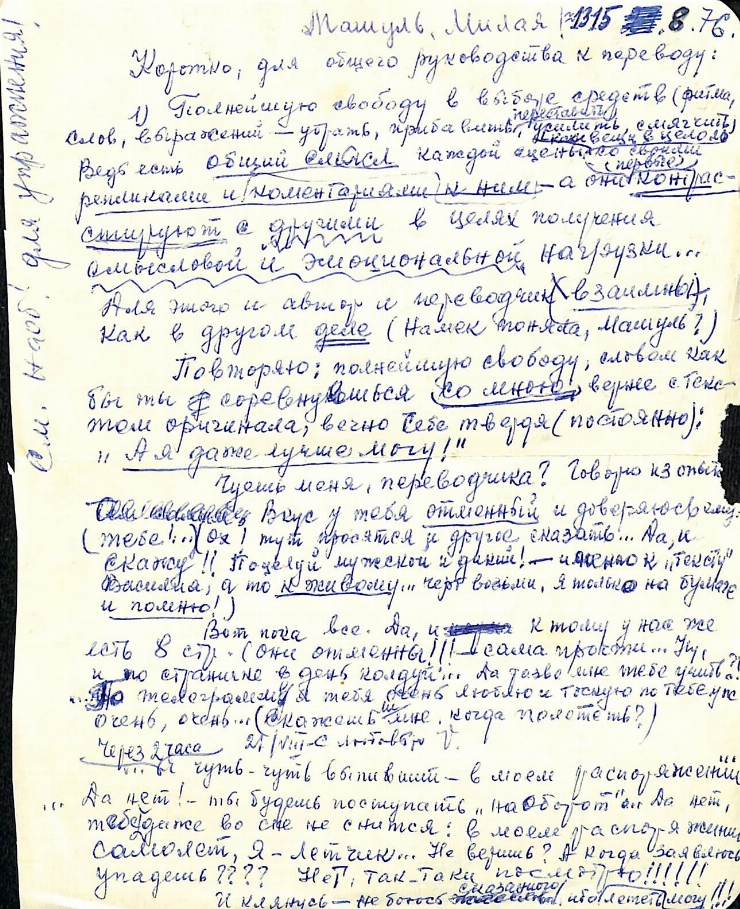 Машуль, Милая! №1315 8.76.
Коротко, для общего руководства к переводу:
1) Полнейшую свободу в выборе средств (ритма,
переставить
слов, выражений – убрать, прибавить, усилить, смягчить)
вещи в целом
Ведь есть общий смысл каждой сцены со своими
(первые)
репликами и (коментариями) к ним – а они контрас-
стируют с другими в целях получения
смысловой и эмоциональной нагрузки...
Для этого и автор и переводчик (взаимны),
как в другом деле (Намек поняла, Машуль?)
Повторяю: полнейшую свободу, словом как
бы ты соревнуешься со мною, верне с текс-
том оригинала, вечно себе твердя (постоянно):
"А я даже лучше могу!"
Чуешь меня, переводчика? Говорю из опыта
Вкус у тебя отменный и доверяюсь ему
(тебе!..(Ох! тут просятся и другое сказать... Да, и
скажу!! Поцелуй мужской и дикий! – именно к "тексту"
Василия, а то к живому... черт возьми, я только на бумаже
и помню!)
Вот пока все. Да, и к тому у нас же
есть 8 стр. (они отменны!!! – сама прости... Ну,
и по страничке в день колдуй... Да разве мне тебе учить?!
...По телеграмме я тебя очень люблю и тоскую по тебе уж
очень, очень... (Скажешь мне, когда полететь?)
Через 2 часа 21/VIII – С любовью V.
... чуть-чуть выпивший – в моем распоряжении
... Да нет! – ты будешь поступать "наоборот"... Да нет,
тебе даже во сне не снится: в моем распоряжении
самолет, я – летчик... Не веришь? А когда заявлюсь
упадешь???? Нет, так-таки посмотрю!!!!!!
сказанного
И клянусь – не боюсь, ибо лететь могу!!!
См. наоб! для упражнения!